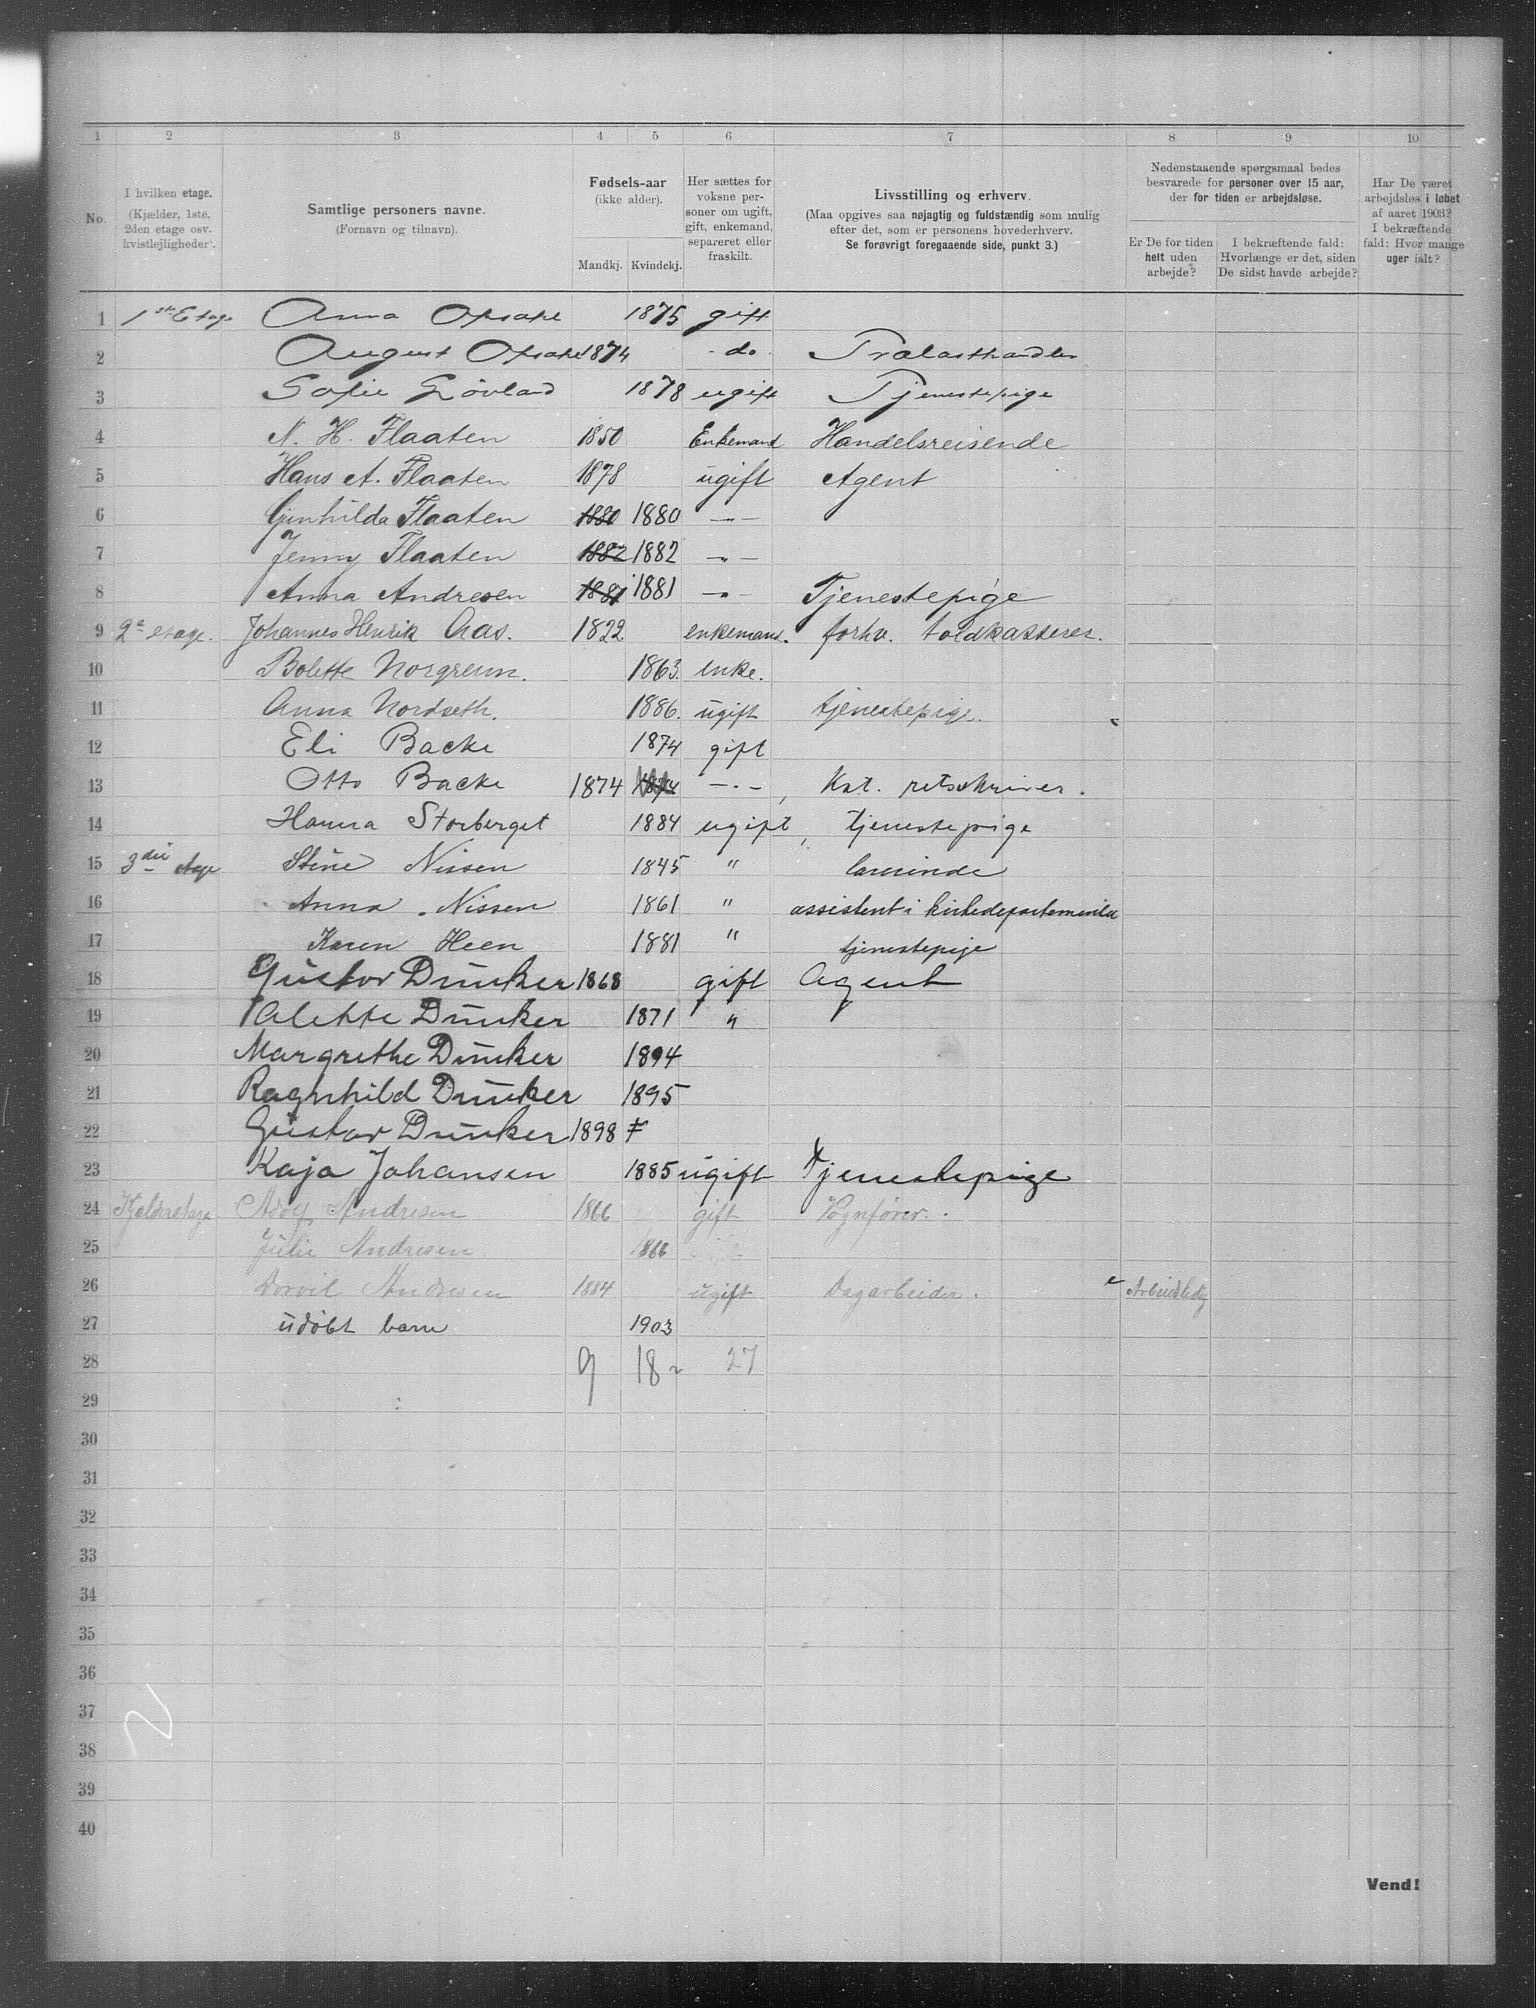 1 2 3 4 5 6 7 8 9 10
No. I hvilken etage. (Kjælder, 1ste. 2den etage osv. kvistlejligheder). Samtlige personers navne. (Fornavn og tilnavn). Fødsels-aar (ikke alder). Mandkj. Kvindekj. Her sættes for voksne personer om ugift, gift, enkemand, separeret eller fraskilt. Livsstilling og erhverv. (Maa opgives saa nøjagtig og fuldstændig som mulig efter det, som er personens hovederhverv. Se forøvrigt foregaaende side, punkt 3.) Nedenstaaende spørgsmaal bedes besvarede for personer over 15 aar, der for tiden er arbejdsløse. Er De for tiden helt uden arbejde? I bekræftende fald: Hvorlænge er det, siden De sidst havde arbejde? Har De været arbejdsløs i løbet af aaret 1903? I bekræftende fald: Hvor mange uger ialt?
1 1st Etage Anna Opsahl 1875 gift
2 August Opsahl 1874 do Trælasthandler
3 Sofie Løvland 1878 ugift Tjenestepige
4 N. H. Flaaten 1850 Enkemand Handelsreisende
5 Hans A. Flaaten 1878 ugift Agent
6 Gunhilda Flaaten 1880 1880 -"-
7 Jenny Flaaten 1882 1882 -"-
8 Anna Andresen 1881 1881 -"- Tjenestepige
9 2e etage. Johannes Henrik Aas. 1822 enkemand. forhv. toldkasserer.
10 Bolette Norgrenn. 1863. enke.
11 Anna Nordseth. 1886. ugift tjenestepige.
12 Eli Backe 1874 gift
13 Otto Backe 1874 1874 -"- Kst. retsskriver.
14 Hanna Storberget 1884 ugift, tjenestepige
15 3die Etage Stine Nissen 1845 " lærerinde
16 Anna Nissen 1861 " assistent i kirkedepartementet
17 Karen Heen 1881 " tjenestepige
18 Gustav Dunker 1868 gift Agent
19 Valette Dunker 1871 "
20 Margrethe Dunker 1894
21 Ragnhild Dunker 1895
22 Gustav Dunker 1898
23 Kaja Johansen 1885 ugift Tjenestepige
24 Kjelderetage Adolf Andresen 1866 gift Vognfører.
25 Julie Andresen 1866
26 Andresen 1884 ugift Dagarbeider. Arbeidsledig
27 udøbt barn 1903
28 9 18 27
29
30
31
32
33
34
35
36
37
38
39
40
Vend!